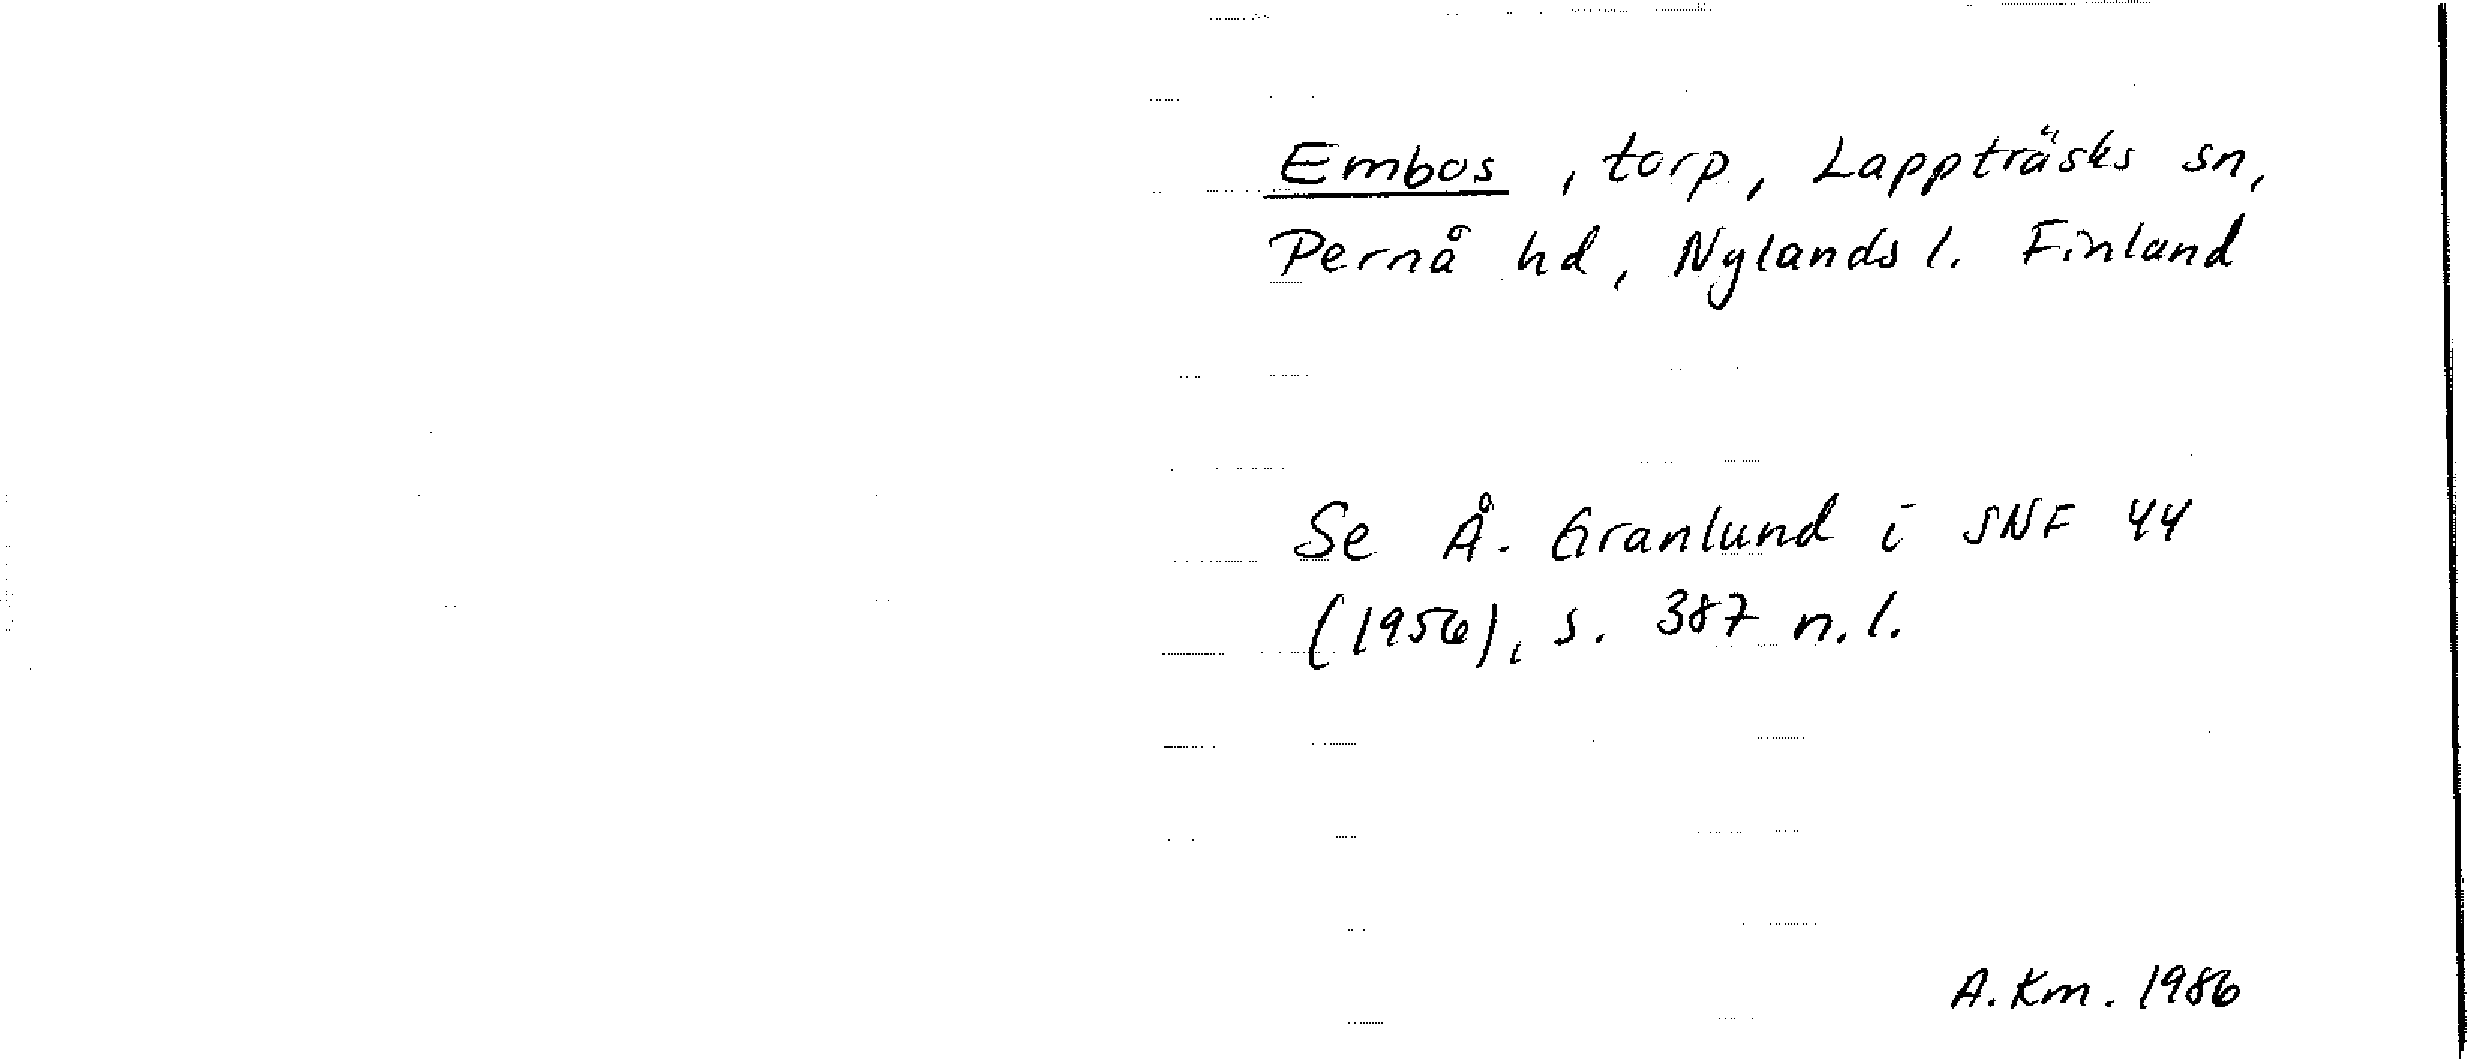 Embos, torp, Lappträsks sn,
Pernå hd, Nylands l. Finland
Se Å. Granlund i SNF 44
(1956), s. 387 n.l.
A. Km. 1986